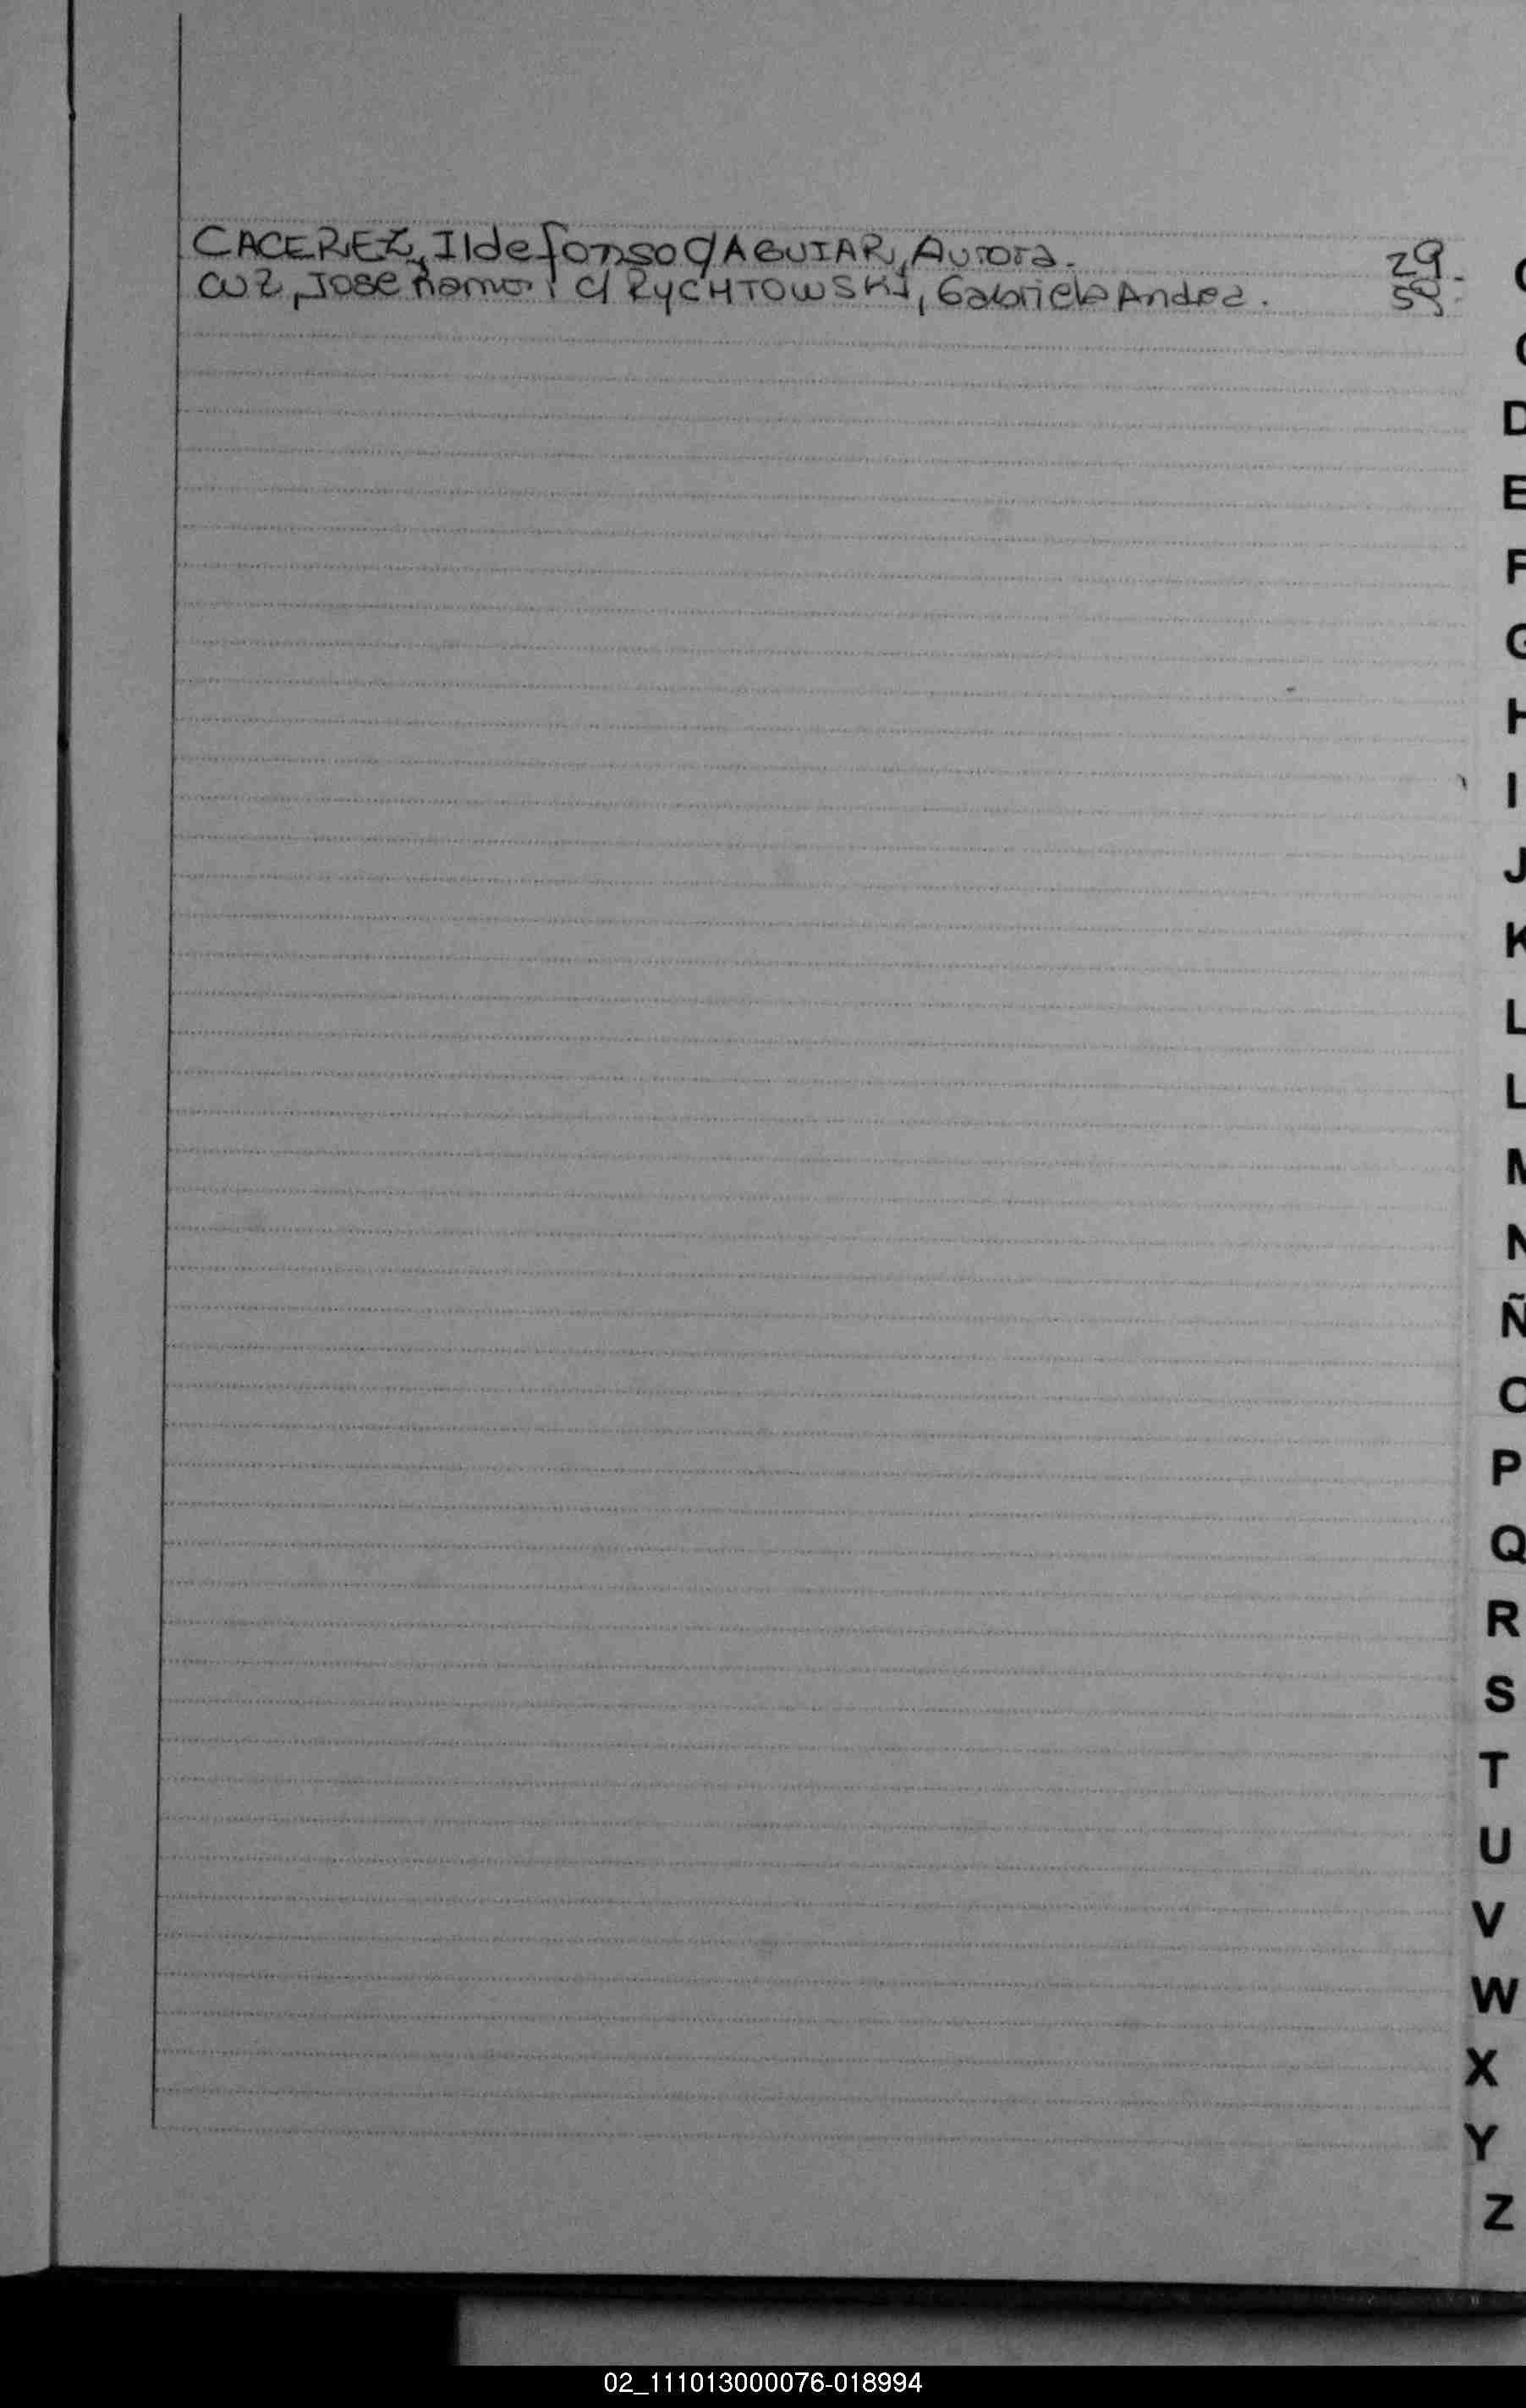 CACEREZ, Ildefonso c/ AGUIAR, Aurora. 29.
CUZ, Jose Ramon c/ RYCHTOWSKI, Gabriela Andea. 59.
C
C
D
E
F
G
H
I
J
K
L
L
M
N
Ñ
O
P
Q
R
S
T
U
V
W
X
Y
Z
02_111013000076-018994